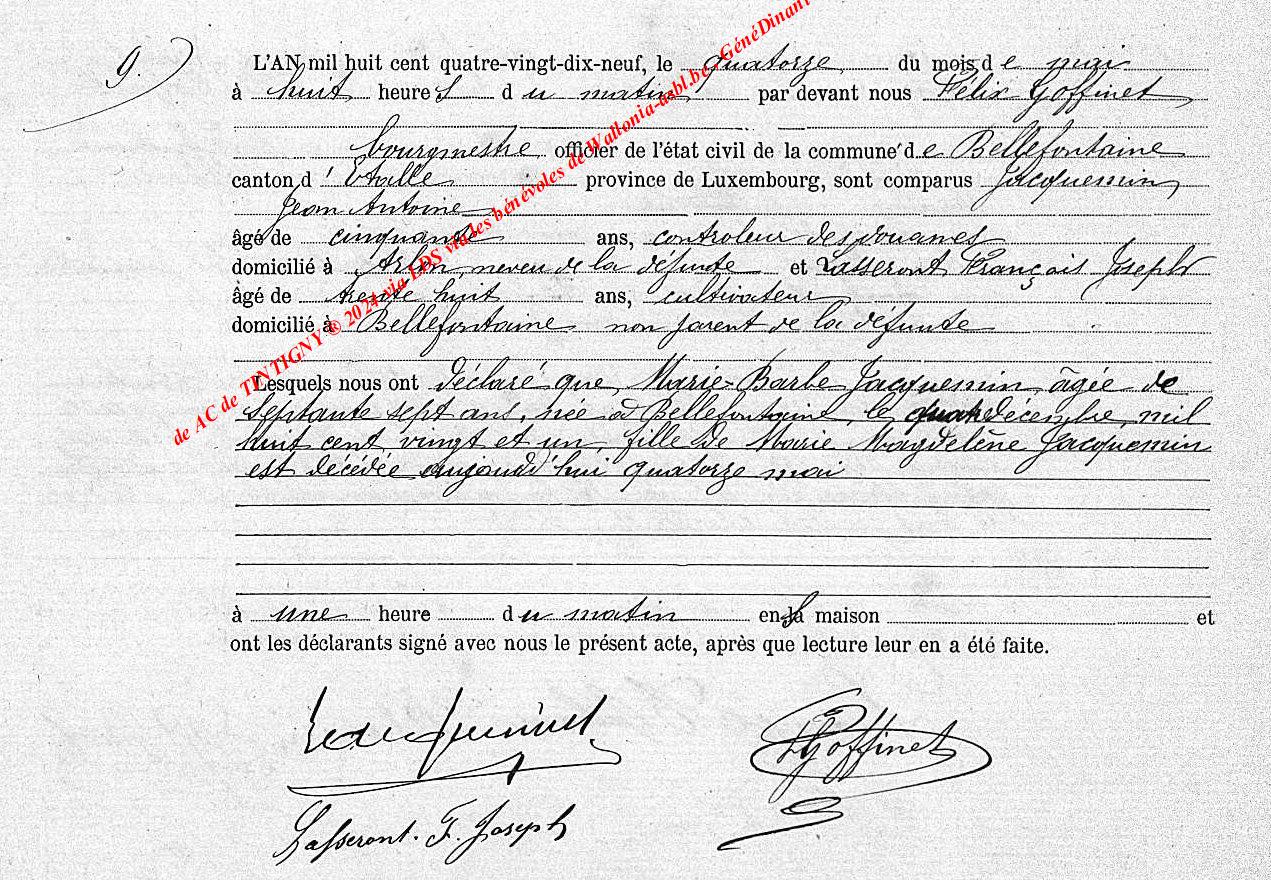 9.
L'AN mil huit cent quatre-vingt-dix-neuf, le quatorze du mois de mai
à huit heures du matin par devant nous Félix Goffinet
bourgmestre officier de l'état civil de la commune de Bellefontaine
canton d'Etalle province de Luxembourg, sont comparus Jacquemin
Jean Antoine
âgé de cinquante ans, controleur des douanes
domicilié à Arlon, neveu de la défunte et Lasseront François Joseph
âgé de trente huit ans, cultivateur
domicilié à Bellefontaine non parent de la défunte
Lesquels nous ont déclaré que Marie-Barbe Jacquemin, âgée de
septante sept ans, née à Bellefontaine, le quatre décembre mil
huit cent vingt et un, fille de Marie Magdelène Jacquemin
est décédée aujourd'hui quatorze mai
à une heure du matin en sa maison et
ont les déclarants signé avec nous le présent acte, après que lecture leur en a été faite.
Goffinet
Lasseront. F. Joseph
de AC de TINTIGNY © 2024 via LDS via les bénévoles de Wallonia-asbl.be, GénéDinant